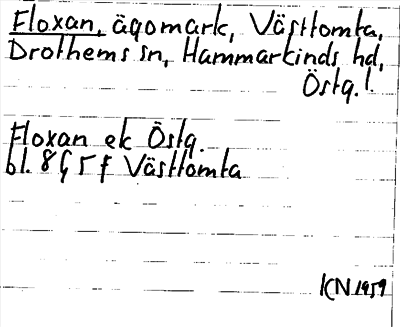 Floxan, ägomark, Västtomta,
Drothems sn, Hammarkinds hd,
Östg. l.
Floxan ek Östg.
bl. 8G5f Västtomta
KN 1959